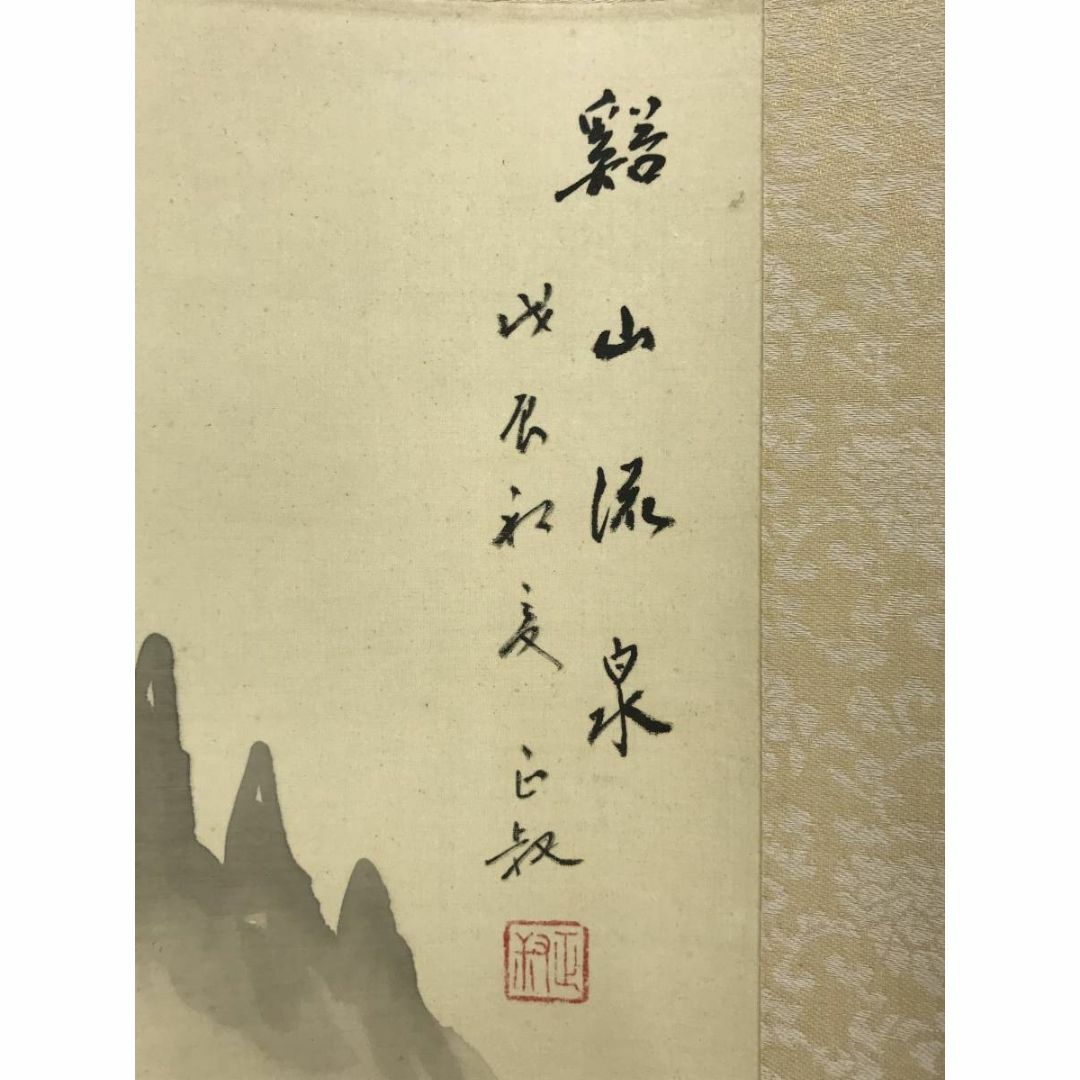 谿山流泉
戊辰初夏 正叔
正叔